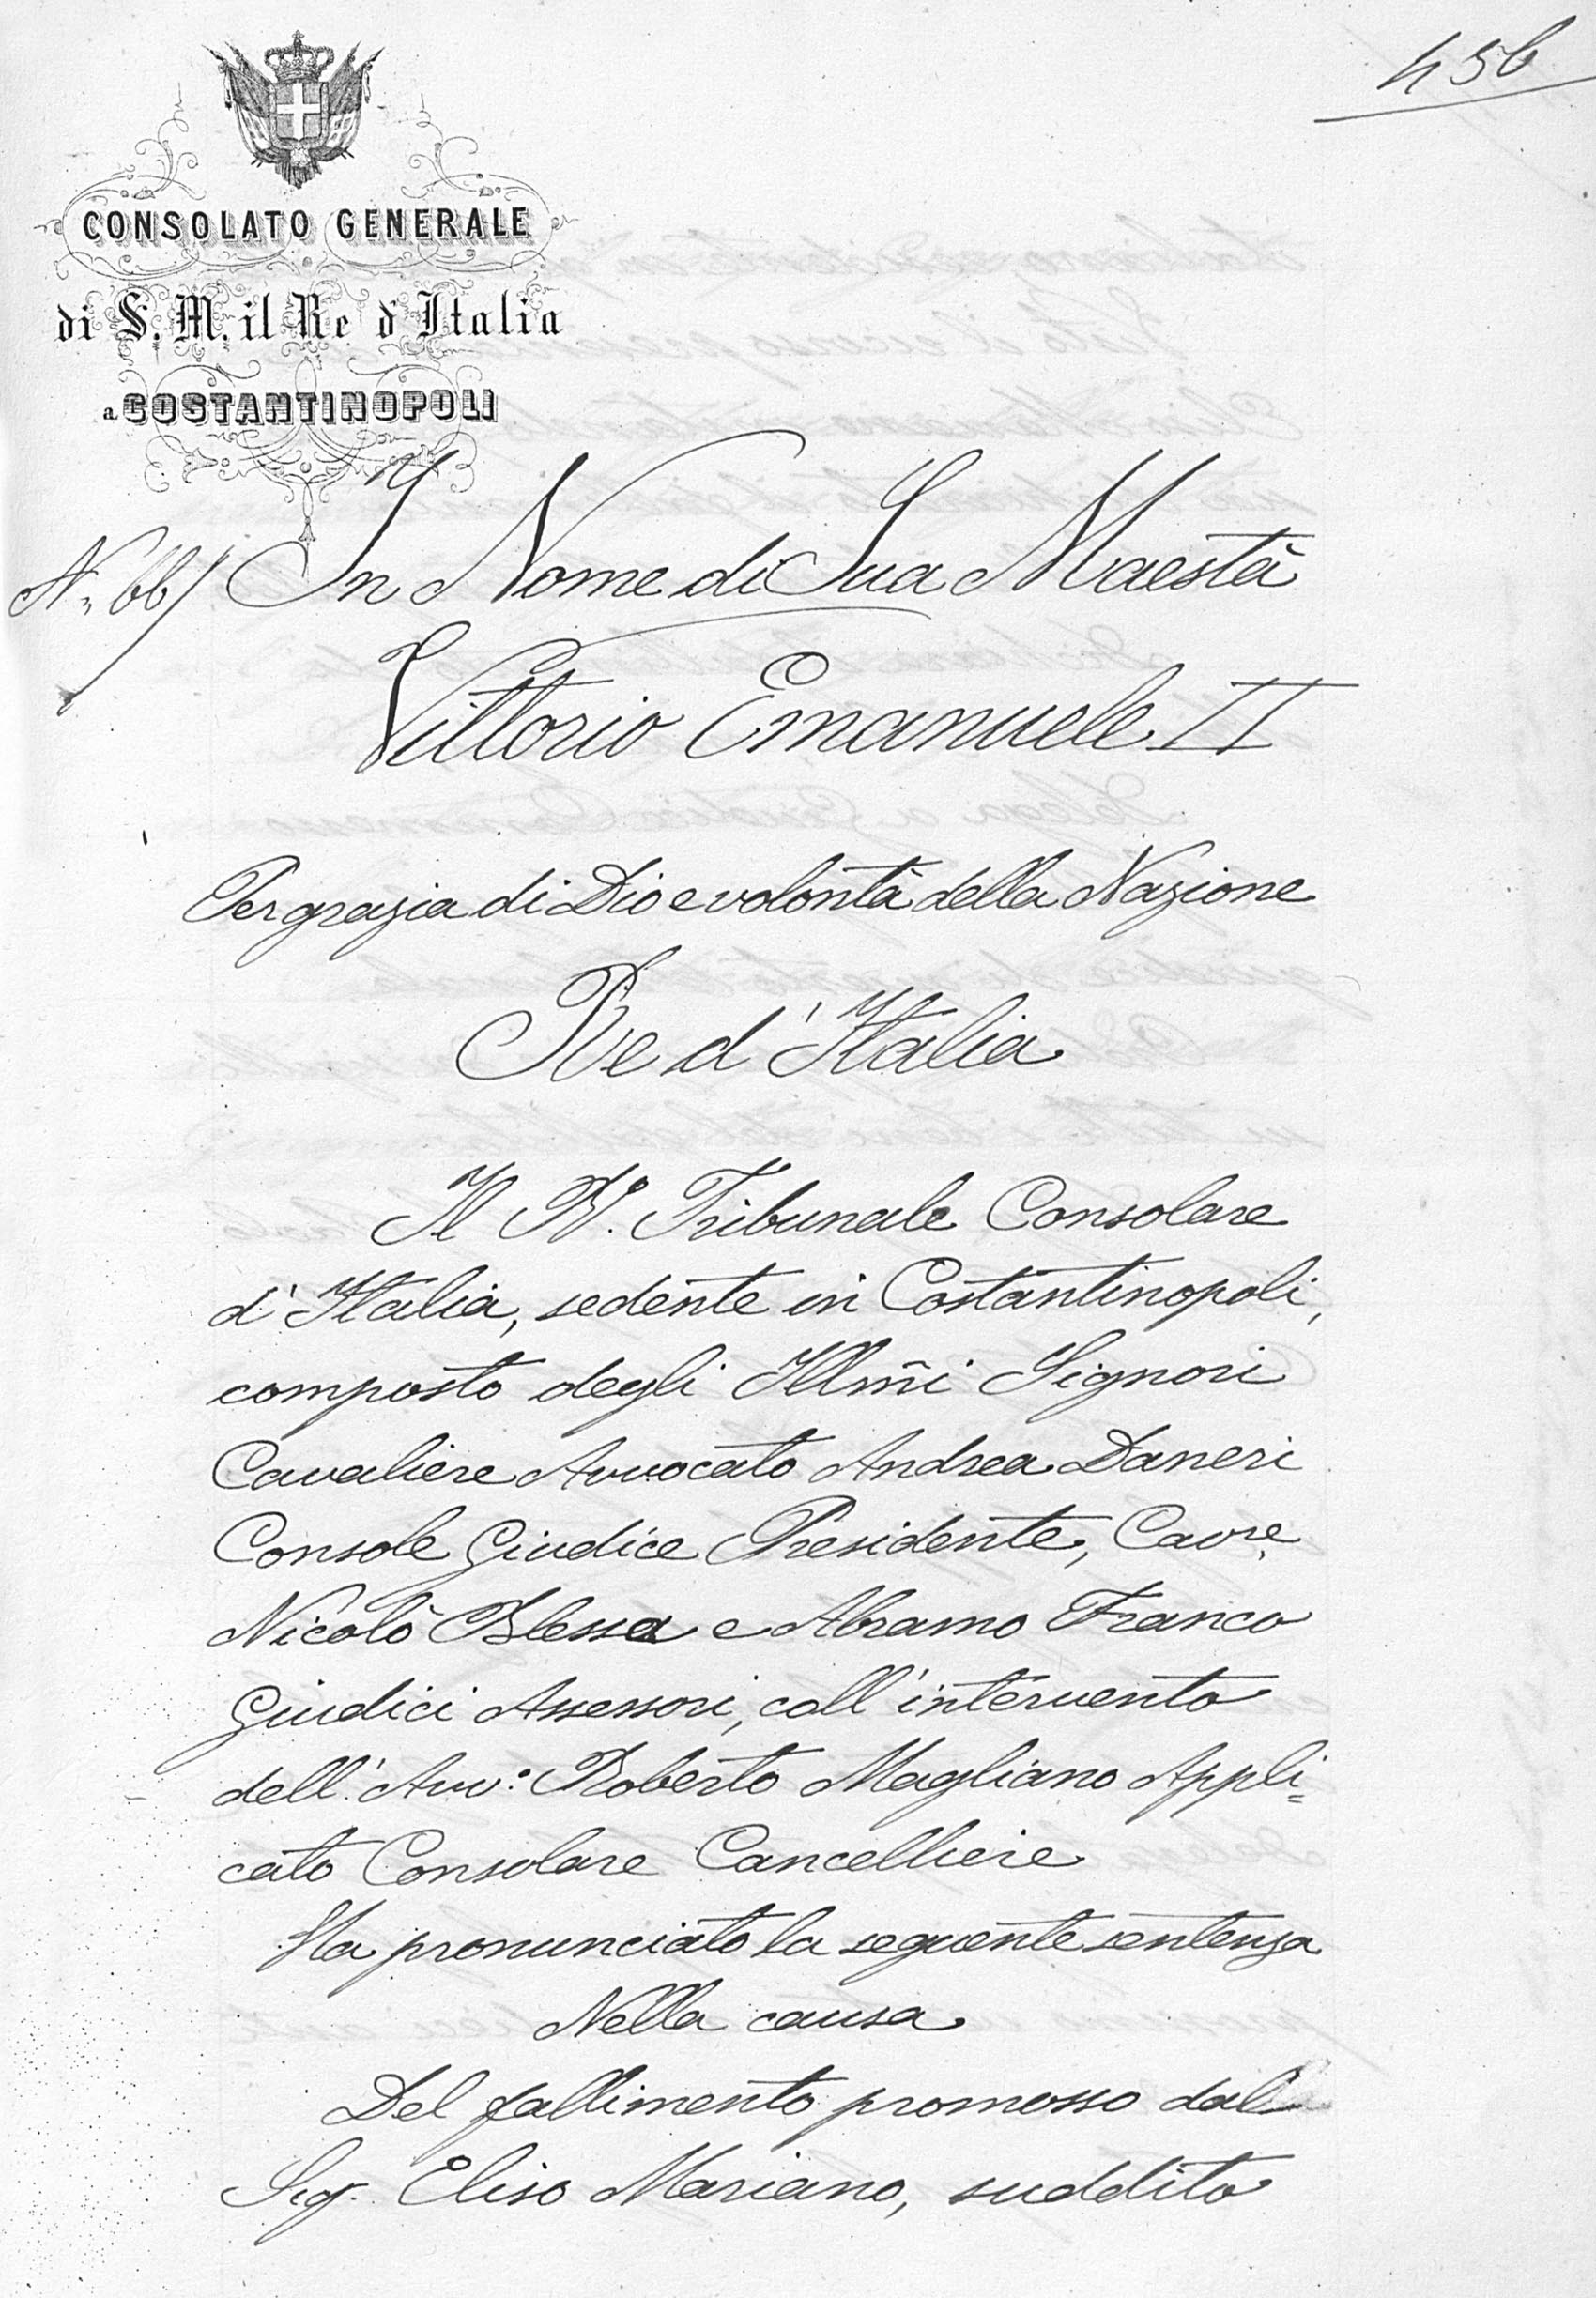 456
CONSOLATO GENERALE
di S. M. il Re d'Italia
a COSTANTINOPOLI
N. 66
In Nome di Sua Maestà
Vittorio Emanuele II
Per grazia di Dio e volontà della Nazione
Re d'Italia
Il R. Tribunale Consolare
d'Italia, sedente in Costantinopoli,
composto degli Illmi Signori
Cavaliere Avvocato Andrea Daneri
Console Giudice Presidente, Cavre
Nicolò Blessa e Abramo Franco
Giudici Assessori, coll'intervento
dell'Avvo: Roberto Magliano Appli=
cato Consolare Cancelliere
Ha pronunciato la seguente sentenza
Nella causa
Del fallimento promosso dal
Sig. Eliso Mariano, suddito